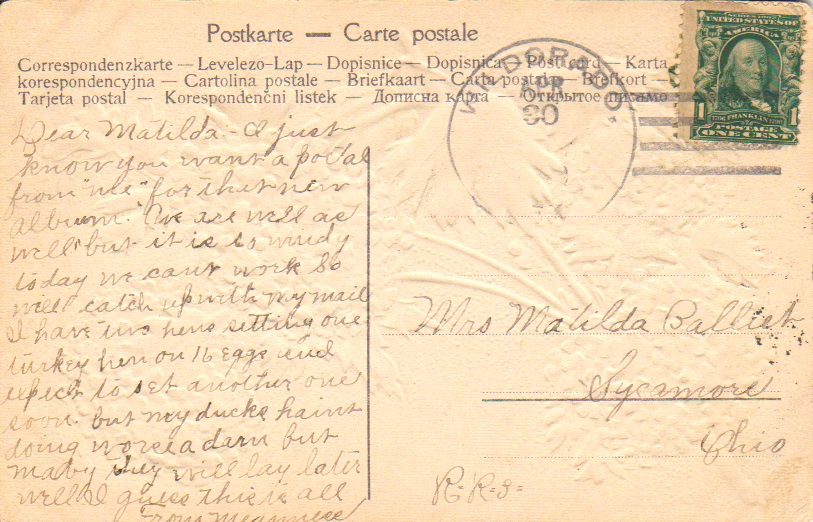 Postkarte — Carte postale
Correspondenzkarte — Levelezo-Lap — Dopisnice — Dopisnica — Postcard — Karta
korespondencyjna — Cartolina postale — Briefkaart — Carta postal — Brefkort —
Tarjeta postal — Korespondenční listek — Дописна карта — Открытое письмо
SERIES 1902
UNITED STATES OF
AMERICA
1706 FRANKLIN 1790
1 1
POSTAGE
ONE CENT
WINDOR
APR
30
Dear Matilda - I just
know you want a postal
from "me" for that new
album. We are well as
well but it is so windy
today we cant work So
will catch up with my mail
I have two hens sitting one
turkey hen on 16 eggs and
expect to set another one
soon. but my ducks haint
doing worse a darn but
maby they will lay later
well I guess this is all
From
Mrs Matilda Balliet
Sycamore
Ohio
R-R-3=